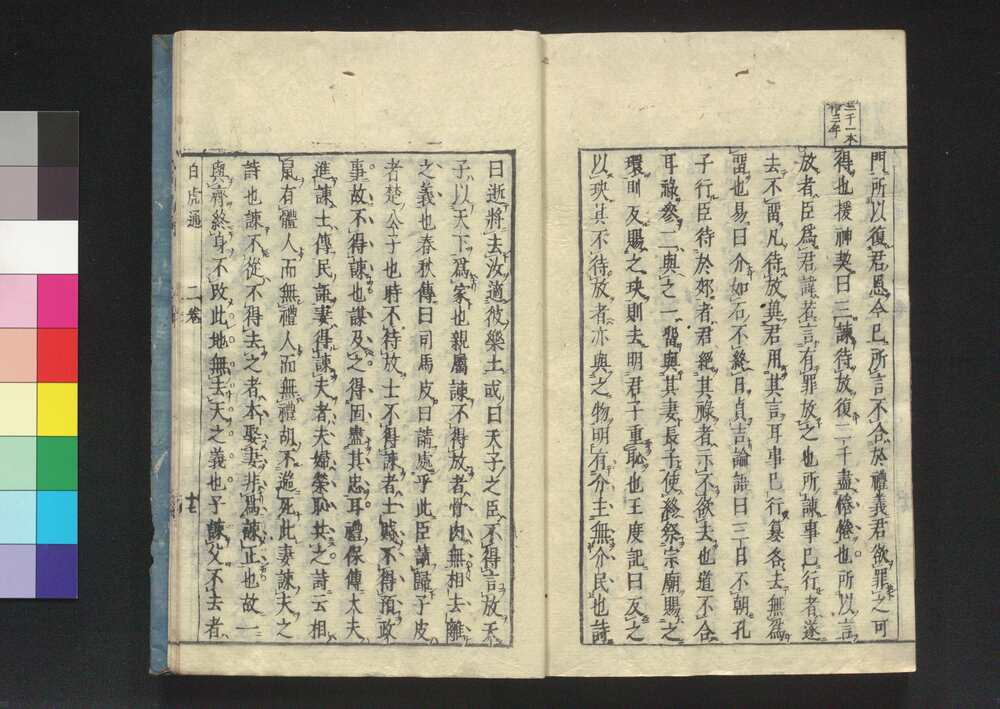 門所以復君恩今已所言不合於禮義君欲罪之可
得也援神契曰三諫待放復三千盡惓惓也所以言
放者臣爲君諱若言有罪放之也所諫事已行者遂
去不留凡待放冀君用其言耳事已行菑各去無爲
留也易曰介如石不終日貞吉論語曰三日不朝孔
子行臣待於郊者君絕其祿者示不欲去也道不合
耳祿參二與之一留與其妻長子使終祭宗廟賜之
環則反賜之玦則去明君子重恥也王度記曰反之
以玦其不待放者亦與之物明有介主無介民也詩
三千一本
作三年
曰逝將去汝適彼樂土或曰天子之臣不得言放天
子以天下爲家也親屬諫不得放者骨肉無相去離
之義也春秋傳曰司馬皮曰請處乎此臣請歸子皮
者楚公子也時不待放士不得諫者士賤不得預政
事故不得諫也謀及之得固盡其忠耳禮保傅大夫
進諫士傳民語妻得諫夫者夫婦榮恥共之詩云相
鼠有體人而無禮人而無禮胡不遄死此妻諫夫之
詩也諫不從不得去之者本娶妻非爲諫正也故一
與齊終身不改此地無去天之義也子諫父不去者
白虎通 二卷